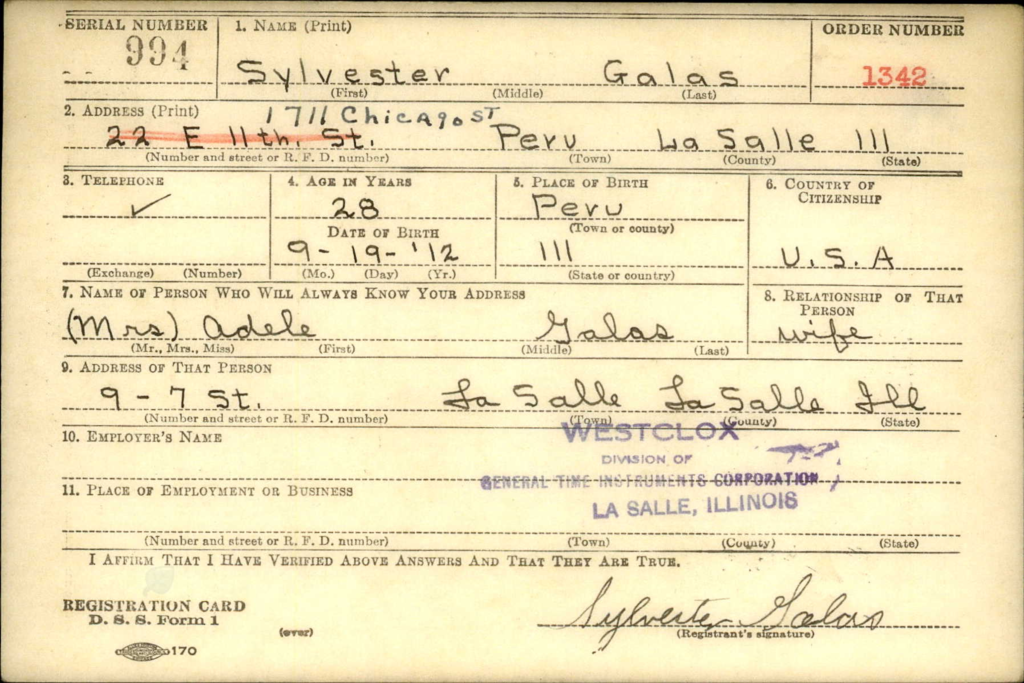 SERIAL NUMBER 1. NAME (Print) ORDER NUMBER
994 Sylvester Galas 1342
(First) (Middle) (Last)
2. ADDRESS (Print) 1711 Chicago ST
22 E 11th. St. Peru La Salle Ill
(Number and street or R. F. D. number) (Town) (County) (State)
3. TELEPHONE 4. AGE IN YEARS 5. PLACE OF BIRTH 6. COUNTRY OF
CITIZENSHIP
28 Peru
DATE OF BIRTH (Town or county)
9-19-'12 Ill U.S.A
(Exchange) (Number) (Mo.) (Day) (Yr.) (State or country)
7. NAME OF PERSON WHO WILL ALWAYS KNOW YOUR ADDRESS 8. RELATIONSHIP OF THAT
PERSON
(Mrs) Adele Galas wife
(Mr., Mrs., Miss) (First) (Middle) (Last)
9. ADDRESS OF THAT PERSON
9-7 St. La Salle La Salle Ill
(Number and street or R. F. D. number) (Town) (County) (State)
10. EMPLOYER'S NAME WESTCLOX
DIVISION OF
GENERAL TIME INSTRUMENTS CORPORATION
11. PLACE OF EMPLOYMENT OR BUSINESS
LA SALLE, ILLINOIS
(Number and street or R. F. D. number) (Town) (County) (State)
I AFFIRM THAT I HAVE VERIFIED ABOVE ANSWERS AND THAT THEY ARE TRUE.
REGISTRATION CARD
D. S. S. Form 1
(over)
Sylvester Galas
(Registrant's signature)
170